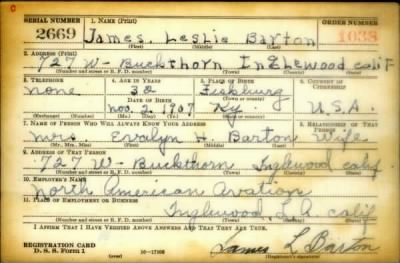 C
SERIAL NUMBER 1. NAME (Print) ORDER NUMBER
2669 James Leslie Barton 1038
(First) (Middle) (Last)
2. ADDRESS (Print)
727 W- Buckthorn Inglewood calif
(Number and street or R. F. D. number) (Town) (County) (State)
3. TELEPHONE 4. AGE IN YEARS 5. PLACE OF BIRTH 6. COUNTRY OF CITIZENSHIP
none 32 Fiskburg
DATE OF BIRTH (Town or county)
Nov. 2, 1907 Ky U.S.A.
(Mo.) (Day) (Yr.) (State or country)
7. NAME OF PERSON WHO WILL ALWAYS KNOW YOUR ADDRESS 8. RELATIONSHIP OF THAT PERSON
Mrs Evalyn H. Barton Wife
(Mr., Mrs., Miss) (First) (Middle) (Last)
9. ADDRESS OF THAT PERSON
727 W- Buckthorn Inglewood calif
(Number and street or R. F. D. number) (Town) (County) (State)
10. EMPLOYER'S NAME
North American Avation
11. PLACE OF EMPLOYMENT OR BUSINESS
Inglewood, L.A. calif
(Number and street or R. F. D. number) (Town) (County) (State)
I AFFIRM THAT I HAVE VERIFIED ABOVE ANSWERS AND THAT THEY ARE TRUE.
REGISTRATION CARD
D. S. S. Form 1 16-17105 James L Barton
(Registrant's signature)